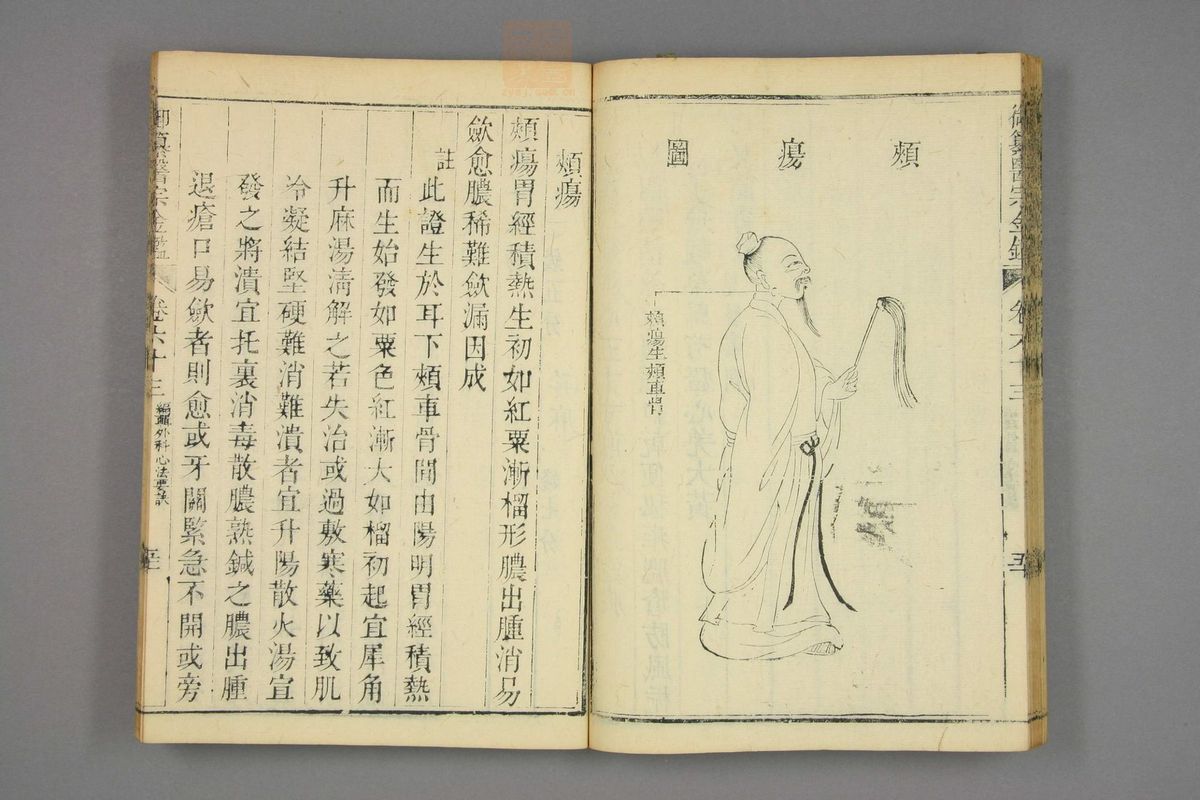 御纂醫宗金鑑
卷六十三
五
頰瘍圖
頰瘍生頰車骨
頰瘍
頰瘍胃經積熱生初如紅粟漸榴形膿出腫消易
斂愈膿稀難斂漏因成
註
此證生於耳下頰車骨間由陽明胃經積熱
而生始發如粟色紅漸大如榴初起宜犀角
升麻湯清解之若失治或過敷寒藥以致肌
冷凝結堅硬難消難潰者宜升陽散火湯宜
發之將潰宜托裏消毒散膿熟鍼之膿出腫
退瘡口易斂者則愈或牙關緊急不開或旁
御纂醫宗金鑑
卷六十三
編輯外科心法要訣